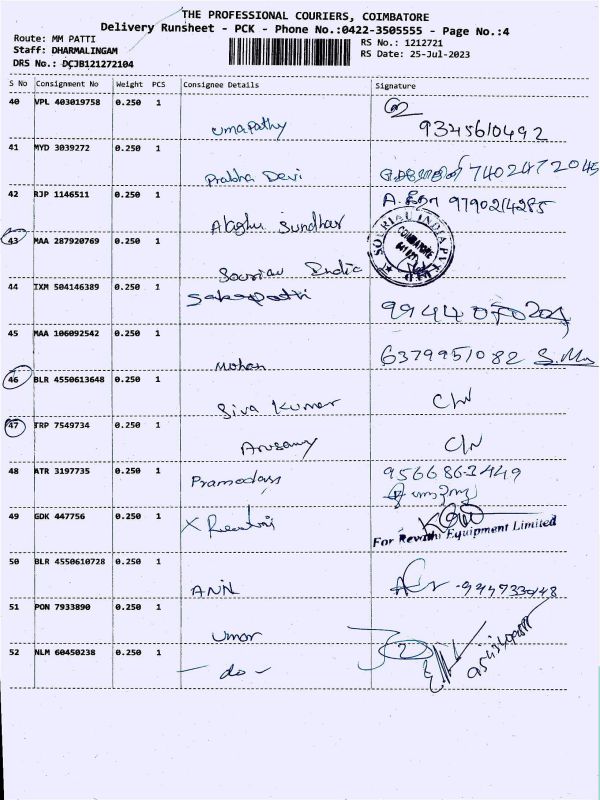 THE PROFESSIONAL COURIERS, COIMBATORE
Delivery Runsheet - PCK - Phone No.:0422-3505555 - Page No.:4
Route: MM PATTI
Staff: DHARMALINGAM
DRS No.: DCJB121272104
RS No.: 1212721
RS Date: 25-Jul-2023
S No Consignment No Weight PCS Consignee Details Signature
40 VPL 403019758 0.250 1
Umapathy 9345610492
41 MYD 3039272 0.250 1
Prabha Devi 7402472045
42 RJP 1146511 0.250 1
Sundhar 9790214285
43 MAA 287920769 0.250 1
Souriau India SOURIAU INDIA PVT LTD COIMBATORE
44 IXM 504146389 0.250 1
45 MAA 106092542 0.250 1
Mohan 6379951082
46 BLR 4550613648 0.250 1
Siva Kumar C/N
47 TRP 7549734 0.250 1
Arusamy C/N
48 ATR 3197735 0.250 1
Pramodass
49 GDK 447756 0.250 1
For Revathi Equipment Limited
50 BLR 4550610728 0.250 1
ANN
51 PON 7933890 0.250 1
Umar
52 NLM 60450238 0.250 1
- do -